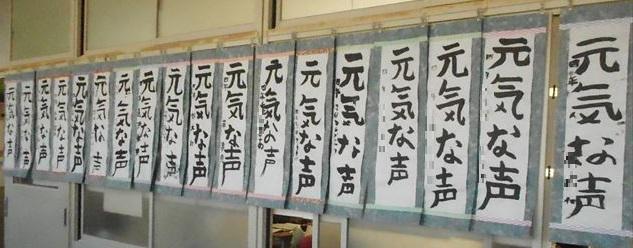 元気な声
元気な声
元気な声
元気な声
元気な声
元気な声
元気な声
元気な声
元気な声
元気な声
元気な声
元気な声
元気な声
元気な声
元気な声
元気な声
元気な声
元気な声